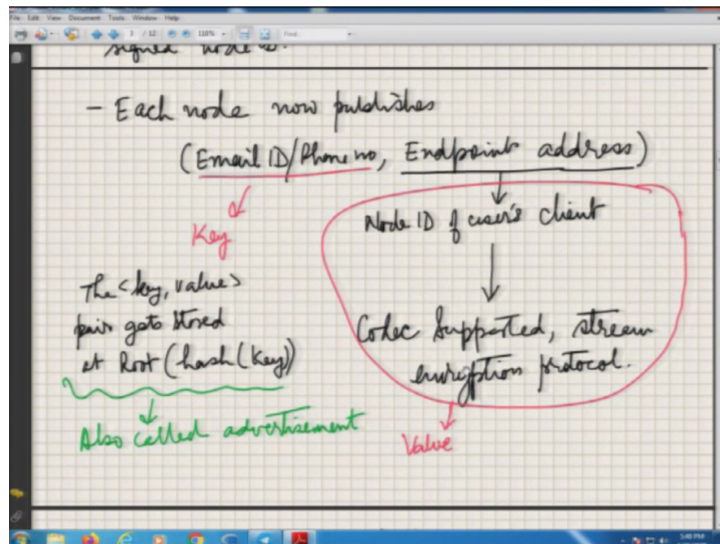 File Edit View Document Tools Window Help
3 / 12
Find
signed node ID.
- Each node now publishes
(Email ID/Phone no, Endpoint address)
Key
Node ID of user's client
The <key, value>
pair gets stored
at Root (hash(Key))
Codec Supported, stream
encryption protocol.
Also called advertisement
Value
5:48 PM